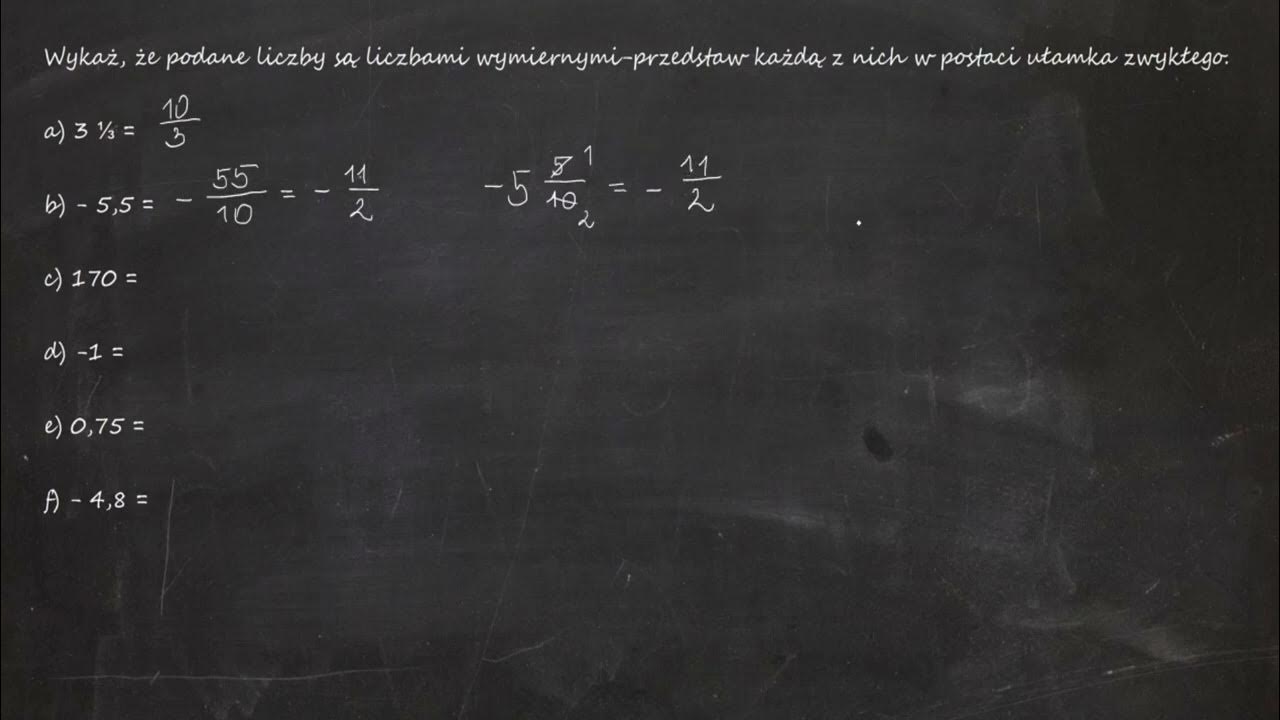 Wykaż, że podane liczby są liczbami wymiernymi-przedstaw każdą z nich w postaci ułamka zwykłego.
a) 3 ⅓ = 10/3
b) - 5,5 = - 55/10 = - 11/2 -5 5/10 1 2 = - 11/2
c) 170 =
d) -1 =
e) 0,75 =
f) - 4,8 =